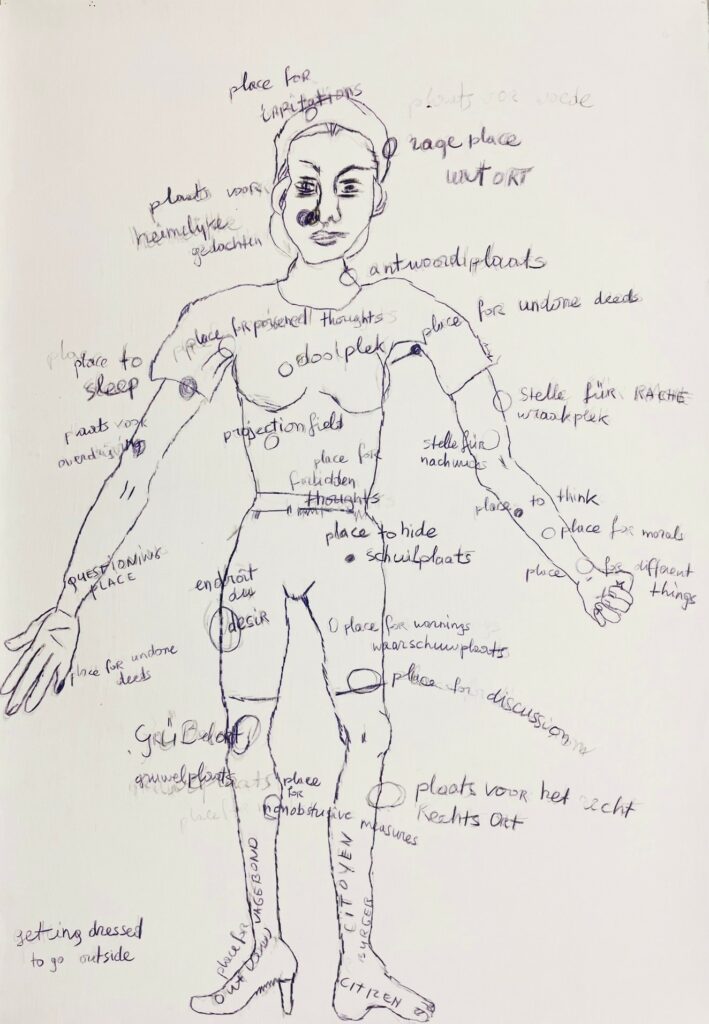 place for
irritations
plaats voor woede
rage place
WUT ORT
plaats voor
heimelijke
gedachten
antwoordplaats
place for undone deeds
place for poisoned thoughts
doolplek
place to
sleep
stelle für RACHE
wraakplek
plaats voor
overdrijving
projection field
stelle für
place for
forbidden
thoughts
place to think
place to hide
schuilplaats
place for morals
place for different
things
QUESTIONING
PLACE
endroit
du
desir
place for warnings
waarschuwplaats
place for undone
deeds
place for discussion
GRÜBelort
gruwelplaats
place
for
nonobstrusive measures
plaats voor het recht
Rechts Ort
VAGEBOND
CITOYEN
BURGER
place for
OUTLAWS
CITIZEN
getting dressed
to go outside